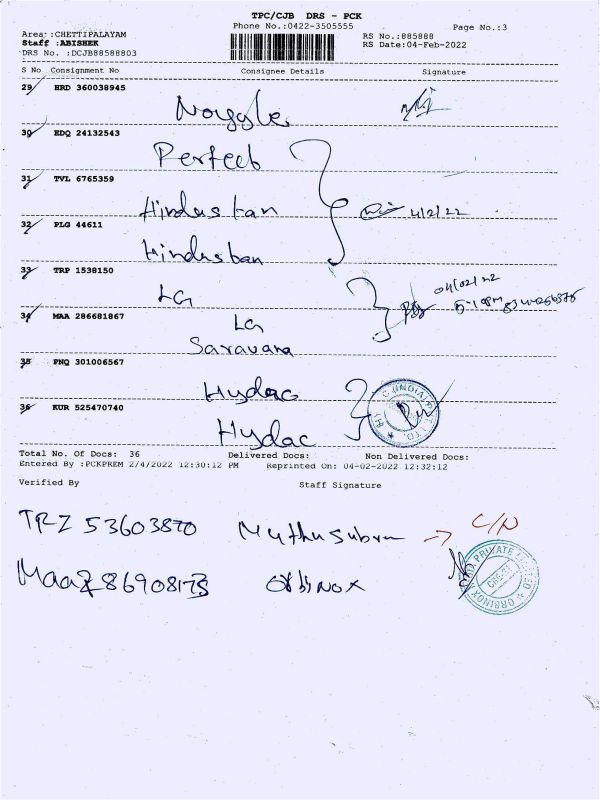 TPC/CJB DRS - PCK
Phone No.:0422-3505555
Page No.:3
Area :CHETTIPALAYAM
RS No.:885888
Staff :ABISHEK
RS Date:04-Feb-2022
DRS No. :DCJB88588803
S No Consignment No Consignee Details Signature
29 HRD 360038945
Noyyle
30 EDQ 24132543
Perfect
31 TVL 6765359
Hindustan 4/2/22
32 PLG 44611
Hindustan
33 TRP 1538150
LG 04/02/22
34 MAA 286681867
LG
Saravana
35 PNQ 301006567
Hydac
36 KUR 525470740
Hydac
Total No. Of Docs: 36 Delivered Docs: Non Delivered Docs:
Entered By :PCKPREM 2/4/2022 12:30:12 PM Reprinted On: 04-02-2022 12:32:12
Verified By Staff Signature
TRZ 53603870 Muthusubram → C/N
Maa 286908173 Orbinox